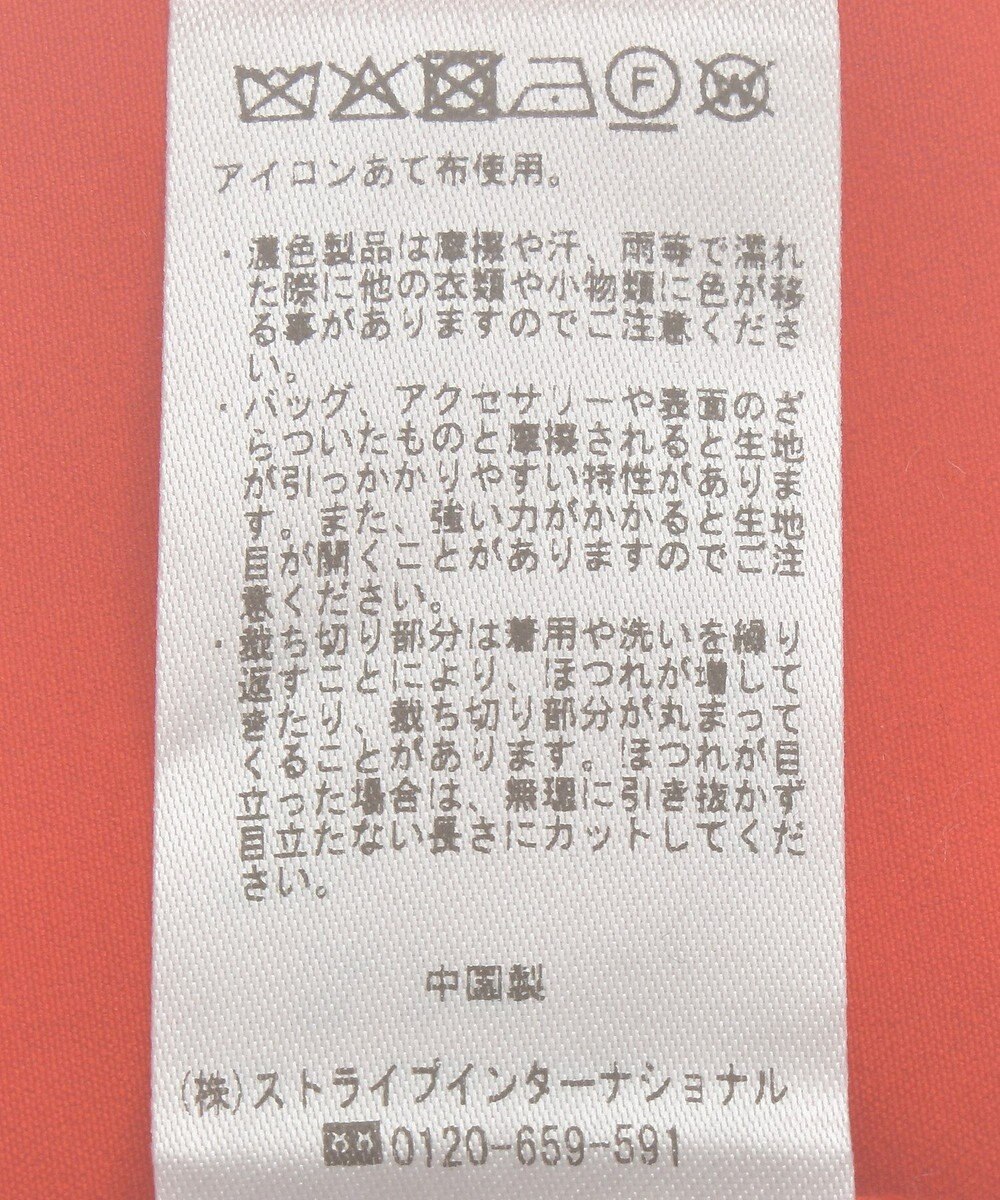 F
W
アイロンあて布使用。
・濃色製品は摩擦や汗、雨等で濡れ
た際に他の衣類や小物類に色が移
る事がありますのでご注意くださ
い。
・バッグ、アクセサリーや表面のざ
らついたものと摩擦されると生地
が引っかかりやすい特性があります。
また、強い力がかかるとあとで生地
目が開くことがありますのでご注
意ください。
・裁ち切り部分は着用や洗いを繰り
返すことにより、ほつれが増して
きたり、裁ち切り部分が丸まって
くることがあります。ほつれが目
立った場合は、無理に引き抜かず
目立たない長さにカットしてくだ
さい。
中国製
(株)ストライプインターナショナル
0120-659-591